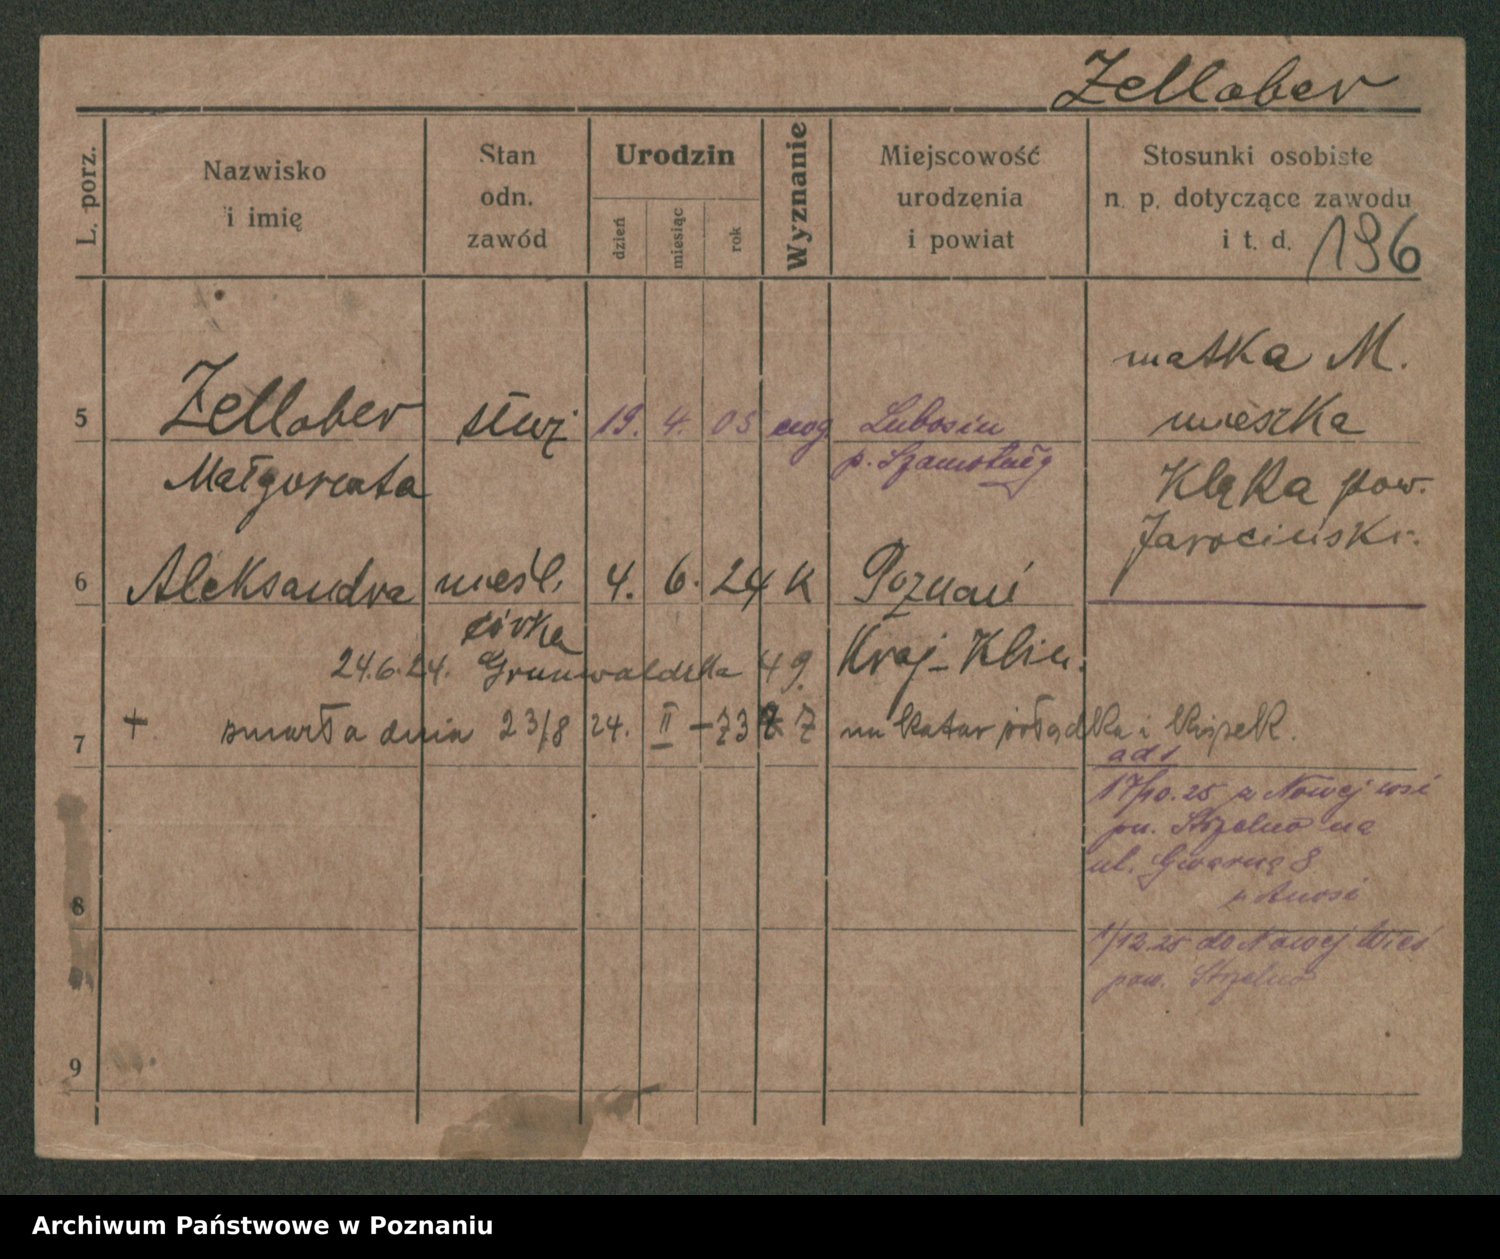 Zellober
L. porz.
Nazwisko
i imię
Stan
odn.
zawód
Urodzin
dzień
miesiąc
rok
Wyznanie
Miejscowość
urodzenia
i powiat
Stosunki osobiste
n. p. dotyczące zawodu
i t. d.
196
matka M.
5 Zellober służ 19. 4. 05 Lubosin mieszka
Małgorzata p. Szamotuły Klęka pow.
Jarocinski.
6 Aleksandra nieśl. 4. 6. 24 K Poznań
córka
24.6.24. Grunwaldzka 49. Kraj-Klin.
7 + zmarła dnia 23/8 24. II – 23 na katar żołądka i kiszek.
17/10.25 z Nowej wsi
pw. Strzelno na
ul. Gwarną 8
1/12 25 do Nowej Wieś
pow. Strzelno
8
9
Archiwum Państwowe w Poznaniu